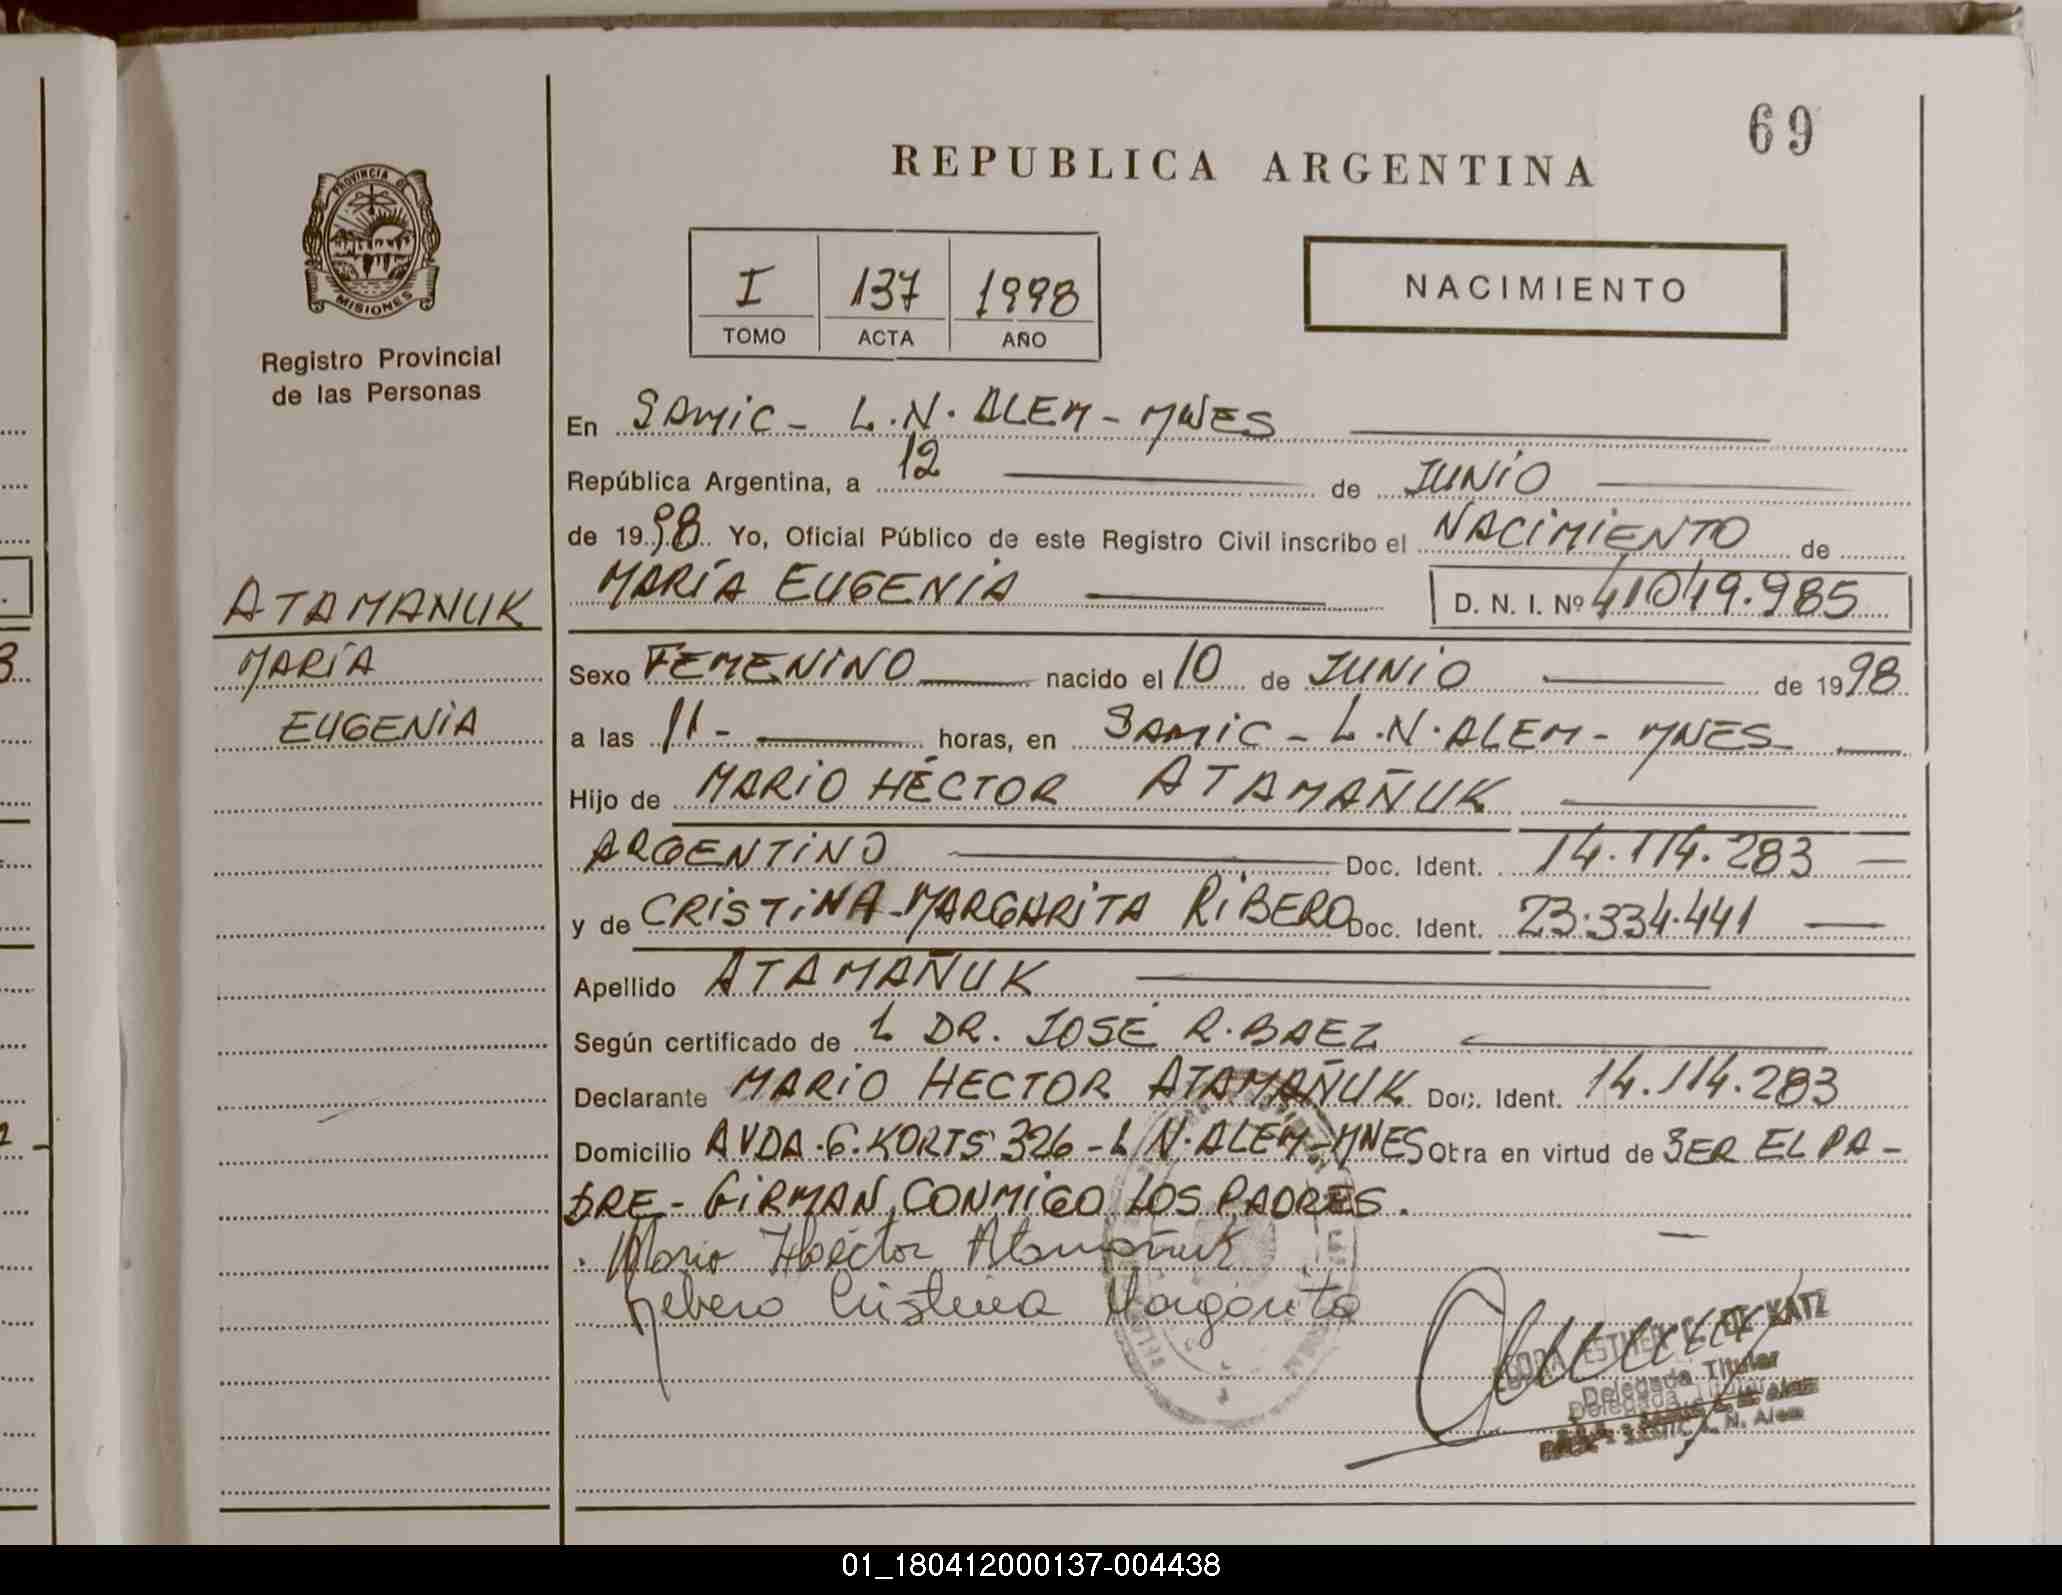 69
REPUBLICA ARGENTINA
PROVINCIA DE
MISIONES
Registro Provincial
de las Personas
I 137 1998
TOMO ACTA AÑO
NACIMIENTO
En SAMIC - L.N. ALEM - MNES
República Argentina, a 12 de JUNIO
de 1998 Yo, Oficial Público de este Registro Civil inscribo el NACIMIENTO de
MARÍA EUGENIA D. N. I. Nº 41.049.985
ATAMANUK
MARÍA
EUGENIA
Sexo FEMENINO nacido el 10 de JUNIO de 1998
a las 11- horas, en SAMIC - L.N. ALEM - MNES
Hijo de MARIO HÉCTOR ATAMAÑUK
ARGENTINO Doc. Ident. 14.114.283
y de CRISTINA MARGARITA RIBERO Doc. Ident. 23.334.441
Apellido ATAMAÑUK
Según certificado de L DR. JOSÉ R. BAEZ
Declarante MARIO HECTOR ATAMAÑUK Doc. Ident. 14.114.283
Domicilio AVDA. G. KORTS 326 - L N. ALEM - MNES Obra en virtud de SER EL PA-
DRE - FIRMAN CONMIGO LOS PADRES.
Mario Haéctor Atamañuk
Rebero Cristina Margarita
ESTHER DE KATZ
Delegada Titular
L. N. Alem
01_180412000137-004438